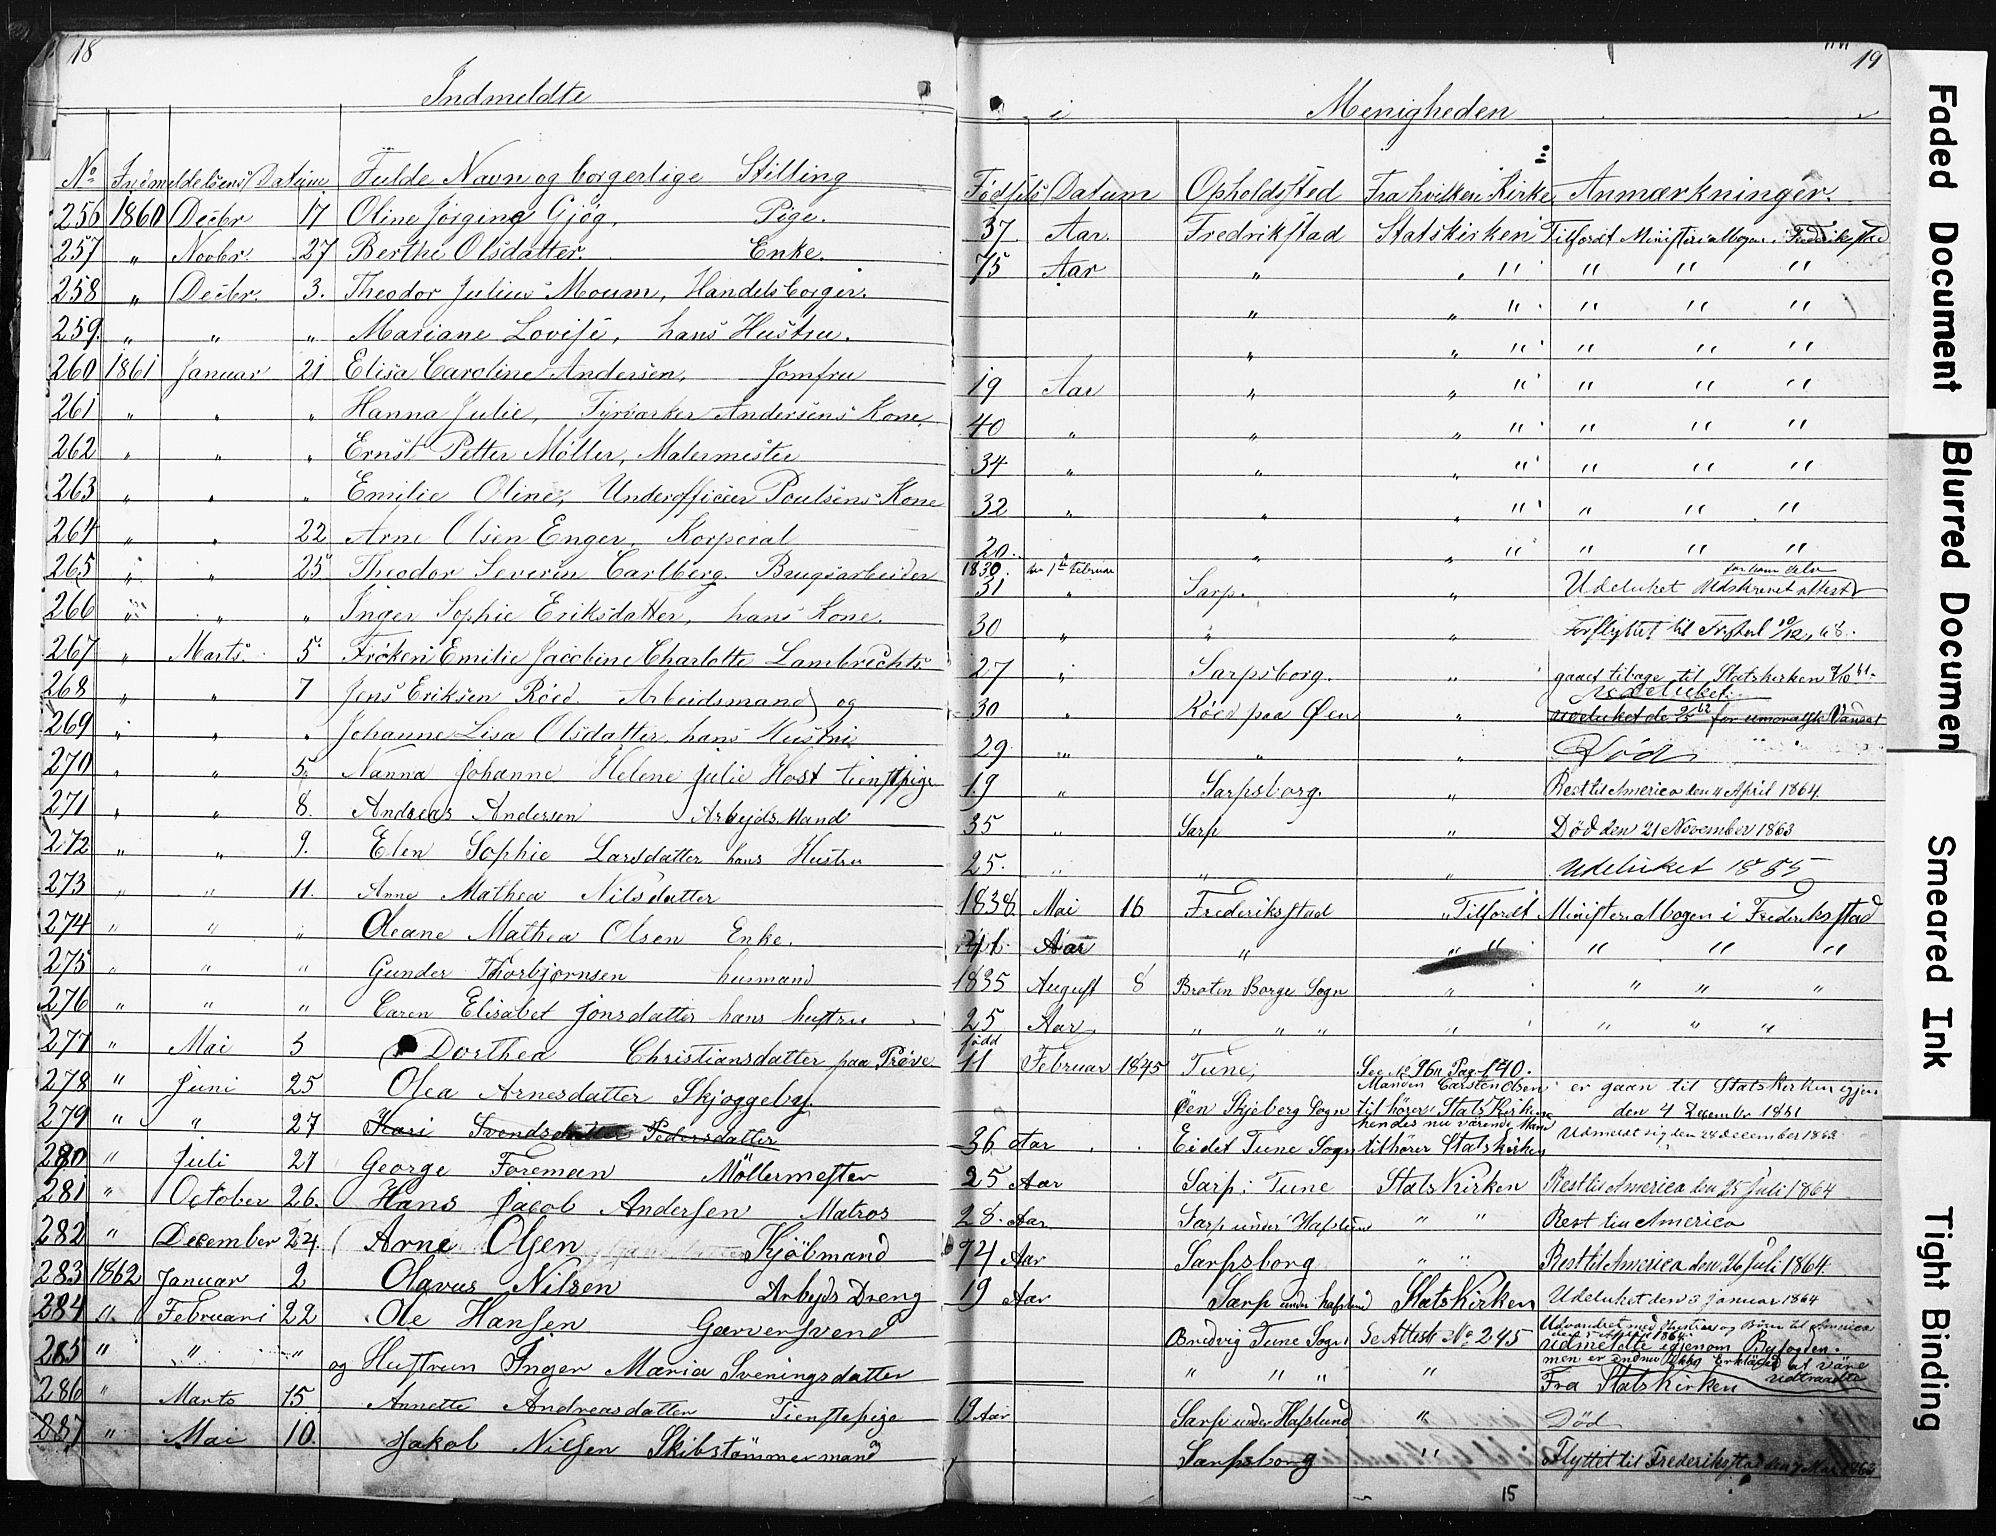 18
Indmeldte
No Indmeldelsens Datum Fulde Navn og borgerlige Stilling
256 1860 Decbr 17 Oline Jørgine Gjøg, Pige.
257 " Novbr. 27 Berthe Olsdatter. Enke.
258 " Decbr. 3. Theodor Julius Moum, Handelsborger.
259. " " " Mariane Lovise, hans Hustru.
260 1861 Januar 21 Elisa Caroline Andersen, Jomfru
261 " " " Hanna Julie, Andersens Kone.
262 " " " Ernst Petter Møller, Malermester
263 " " " Emilie Oline, Underofficier Poulsens Kone
264 " " 22 Arne Olsen Enger, Korporal
265 " " 25 Theodor Severin Carlberg. Brugsarbeider
266 " " " Inger Sophie Eriksdatter, hans Kone.
267 " Marts. 5 Frøken Emilie Jacobine Charlotte Lambrechts
268 " " 7 Jens Eriksen Röed. Arbeidsmand og
269 " " " Johanne Lisa Olsdatter, hans Hustru
270 " " 5. Nanna Johanne Helene Julie Høst tienstpige
271 " " 8. Andreas Andersen Arbejds Mand
272 " " 9. Elen Sophie Larsdatter hans Hustru
273 " " 11. Anne Mathea Nilsdatter
274 " " " Oleane Mathea Olsen Enke.
275 " " " Gunder Thorbjørnsen husmand
276 " " " Caren Elisabet Jonsdatter hans hustru
277 " Mai 5 Dorthea Christiansdatter paa Prøve
278 " Juni 25 Olea Arnesdatter Skjoggeby
279 " " 27 Kari Pedersdatter
280 " Juli 27 George Foreman Möllermester
281 " October 26. Hans Jacob Andersen Matros
282 " December 24. Arne Olsen Skjöbmand
283 1862 Januar 2 Olavus Nilsen Arbejds Dreng
284 " Februari 22 Ole Hansen Garversvend
285 " " " og Hustrun Inger Maria Sveningsdatter
286 " Marts 15 Annette Andreasdatter Tienstepige
287 " Mai 10. Jakob Nilsen Skibstömmermand
19
i Menigheden
Fødsels Datum Opholdsted Fra hvilken Kirke Anmærkninger.
37 Aar. Fredrikstad Statskirken Tilfordt Ministerialbogen i Fredrikstad
75 Aar " " " " " "
" " " " " "
" " " " " "
19 Aar " " " " " "
40 " " " " " " "
34 " " " " " " "
32 " " " " " " "
20. " " " " " " "
1830. 1ste Februar
31 " Sarp. " Udelukket Udskrevet attest
30 " " "
27 " Sarpsborg. " gaaet tilbage til Statskirken
Udelukket.
30 " Röed paa Øen " for umoralsk Vandel
29 " " " Död
19 " Sarpsborg. " Rest til America den 11 April 1864.
35 " Sarp " Död den 21 November 1863
25. " " " Udelukket 1865
1838 Mai 16 Frederiksstad " Tilfordt Ministerialbogen i Frederiksstad
Aar " " " " " "
1835 August 8 Braten Borge Sogn " " " "
25 Aar. " " " " " " "
född
11 Februar 1845 Tune, See Pag 190.
Manden Carsten Olsen er gaan til Statskirken igjen
Öen Skjeberg Sogn tilhører StatsKirken den 4 December 1861
hendes nu værende Man Udmeldt sig den 28 december 1862
36 Aar Eidet Tune Sogn tilhører StatsKirken
25 Aar Sarp i Tune StatsKirken Rest til America den 25 Juli 1864
28. Aar. Sarp under Hafslund " " Rest til America
74 Aar Sarpsborg " " Rest til America den 26 Juli 1864.
19 Aar Sarp under hafslund StatsKirken Udelukket den 3 Januar 1864
Udvandret med Hustru og Børn til America
den 5 April 1864.
Bredvig Tune Sogn Se Attest No 245 udmeldte igjenom Byfogden.
men er endnu Erklæred at väre
udtraadte
" " " " Fra StatsKirken
19 Aar Sarp under Hafslund " Död
Sarpsborg " Flyttet til Frederikstad den 7 Mai 1863
15
Faded Document
Blurred Documen
Smeared Ink
Tight Binding